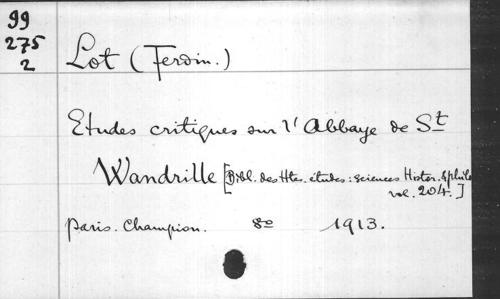 99
275
2
Lot (Ferdin.)
Etudes critiques sur l'Abbaye de St
Wandrille [Bibl. des Htes. études: sciences Histor. & philo
vol. 204.]
Paris. Champion. 8o 1913.